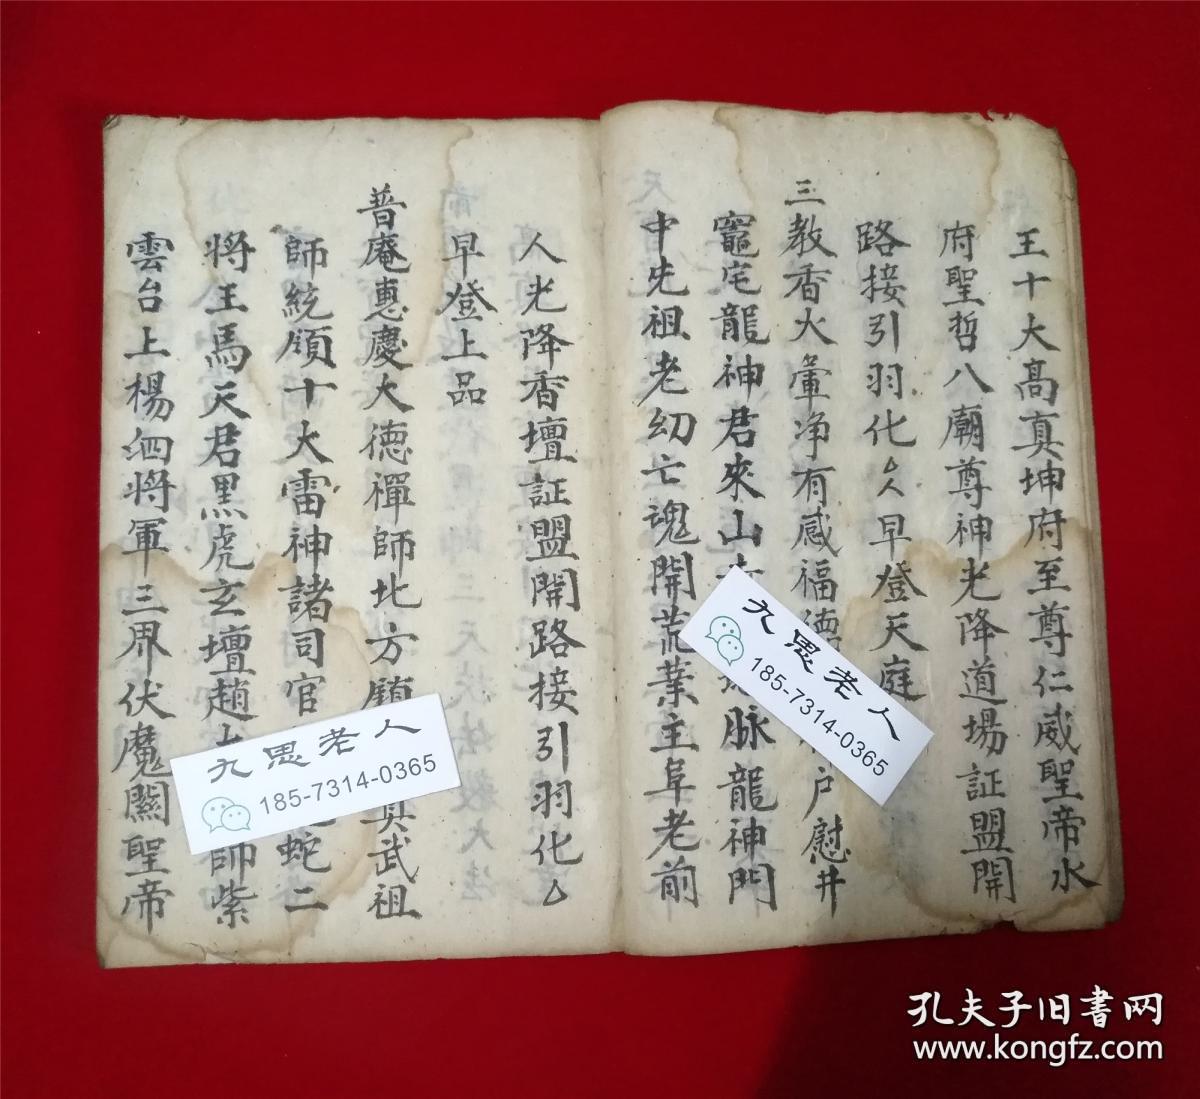 王十大高真坤府至尊仁威聖帝水
府聖哲八廟尊神光降道場証盟開
路接引羽化厶人早登天庭
三教香火輩净有感福德 户慰井
竈宅龍神君來山 脉龍神門
中先祖老幼亡魂開荒業主阜老前
人光降香壇証盟開路接引羽化厶
早登上品
普庵惠慶大德禪師北方鎮 真武祖
師統領十大雷神諸司官 蛇二
将王馬天君黑虎玄壇趙 師紫
雲台上楊泗将軍三界伏魔關聖帝
九思老人
185-7314-0365
九思老人
185-7314-0365
孔夫子旧书网
www.kongfz.com